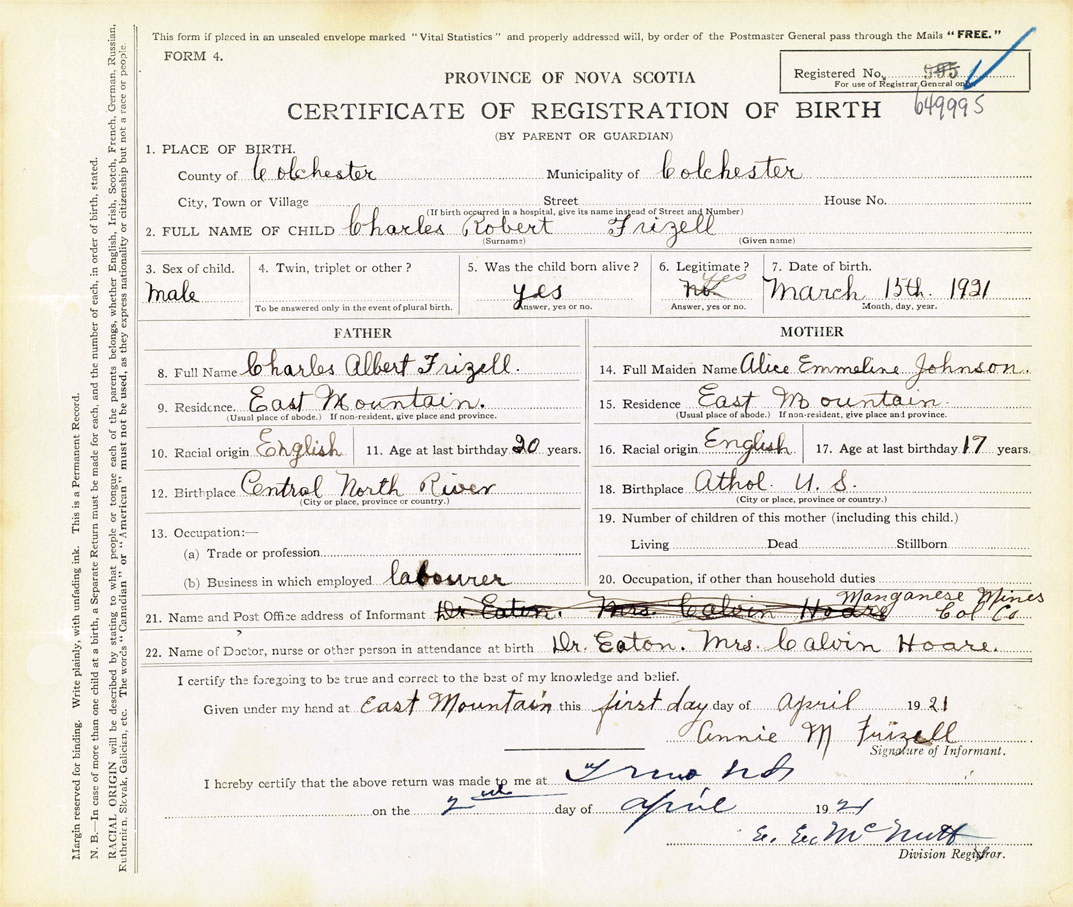 This form if placed in an unsealed envelope marked "Vital Statistics" and properly addressed will, by order of the Postmaster General pass through the Mails "FREE."
FORM 4.
Registered No. 595
For use of Registrar General only
649995
PROVINCE OF NOVA SCOTIA
CERTIFICATE OF REGISTRATION OF BIRTH
(BY PARENT OR GUARDIAN)
1. PLACE OF BIRTH.
County of Colchester Municipality of Colchester
City, Town or Village Street House No.
(If birth occurred in a hospital, give its name instead of Street and Number)
2. FULL NAME OF CHILD Charles Robert Frizell
(Surname) (Given name)
3. Sex of child. 4. Twin, triplet or other? 5. Was the child born alive? 6. Legitimate? 7. Date of birth.
male yes no. yes March 15th. 1921
To be answered only in the event of plural birth. Answer, yes or no. Answer, yes or no. Month, day, year.
FATHER
8. Full Name Charles Albert Frizell.
9. Residence. East Mountain.
(Usual place of abode.) If non-resident, give place and province.
10. Racial origin English 11. Age at last birthday 20 years.
12. Birthplace Central North River
(City or place, province or country.)
13. Occupation:—
(a) Trade or profession
(b) Business in which employed labourer
MOTHER
14. Full Maiden Name Alice Emmeline Johnson.
15. Residence East Mountain.
(Usual place of abode.) If non-resident, give place and province.
16. Racial origin English 17. Age at last birthday 17 years.
18. Birthplace Athol. U. S.
(City or place, province or country.)
19. Number of children of this mother (including this child.)
Living Dead Stillborn
20. Occupation, if other than household duties
21. Name and Post Office address of Informant Dr. Eaton. Mrs. Calvin Hoare Manganese Mines
Col Co
22. Name of Doctor, nurse or other person in attendance at birth Dr. Eaton. Mrs. Calvin Hoare.
I certify the foregoing to be true and correct to the best of my knowledge and belief.
Given under my hand at East Mountain this first day day of April 1921
Annie M Frizell
Signature of Informant.
I hereby certify that the above return was made to me at Truro NS
on the 2nd day of April 1921
E. E. McNutt
Division Registrar.
Margin reserved for binding. Write plainly, with unfading ink. This is a Permanent Record.
N. B.—In case of more than one child at a birth, a Separate Return must be made for each, and the number of each, in order of birth, stated.
RACIAL ORIGIN will be described by stating to what people or tongue each of the parents belongs, whether English, Irish, Scotch, French, German, Russian,
Ruthenian, Slovak, Galician, etc. The words "Canadian" or "American" must not be used, as they express nationality or citizenship but not a race or people.